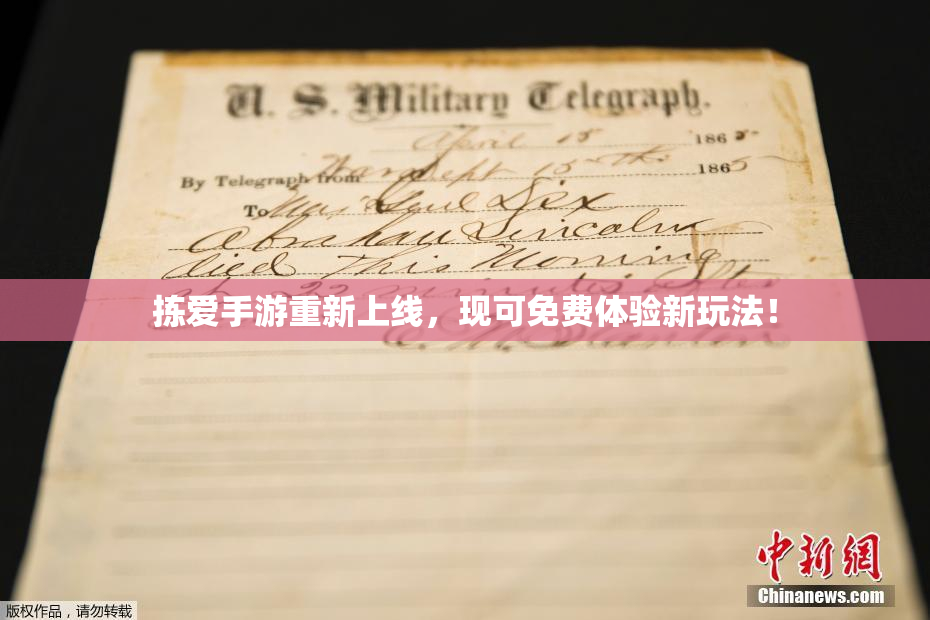 U. S. Military Telegraph.
April 15 1865
By Telegraph from Washn Sept 15th 1865
To Maj Genl Dix
Abraham Lincoln
died This Morning
at 22 minutes after
拣爱手游重新上线，现可免费体验新玩法！
E. M. Stanton
中新网
Chinanews.com
版权作品，请勿转载